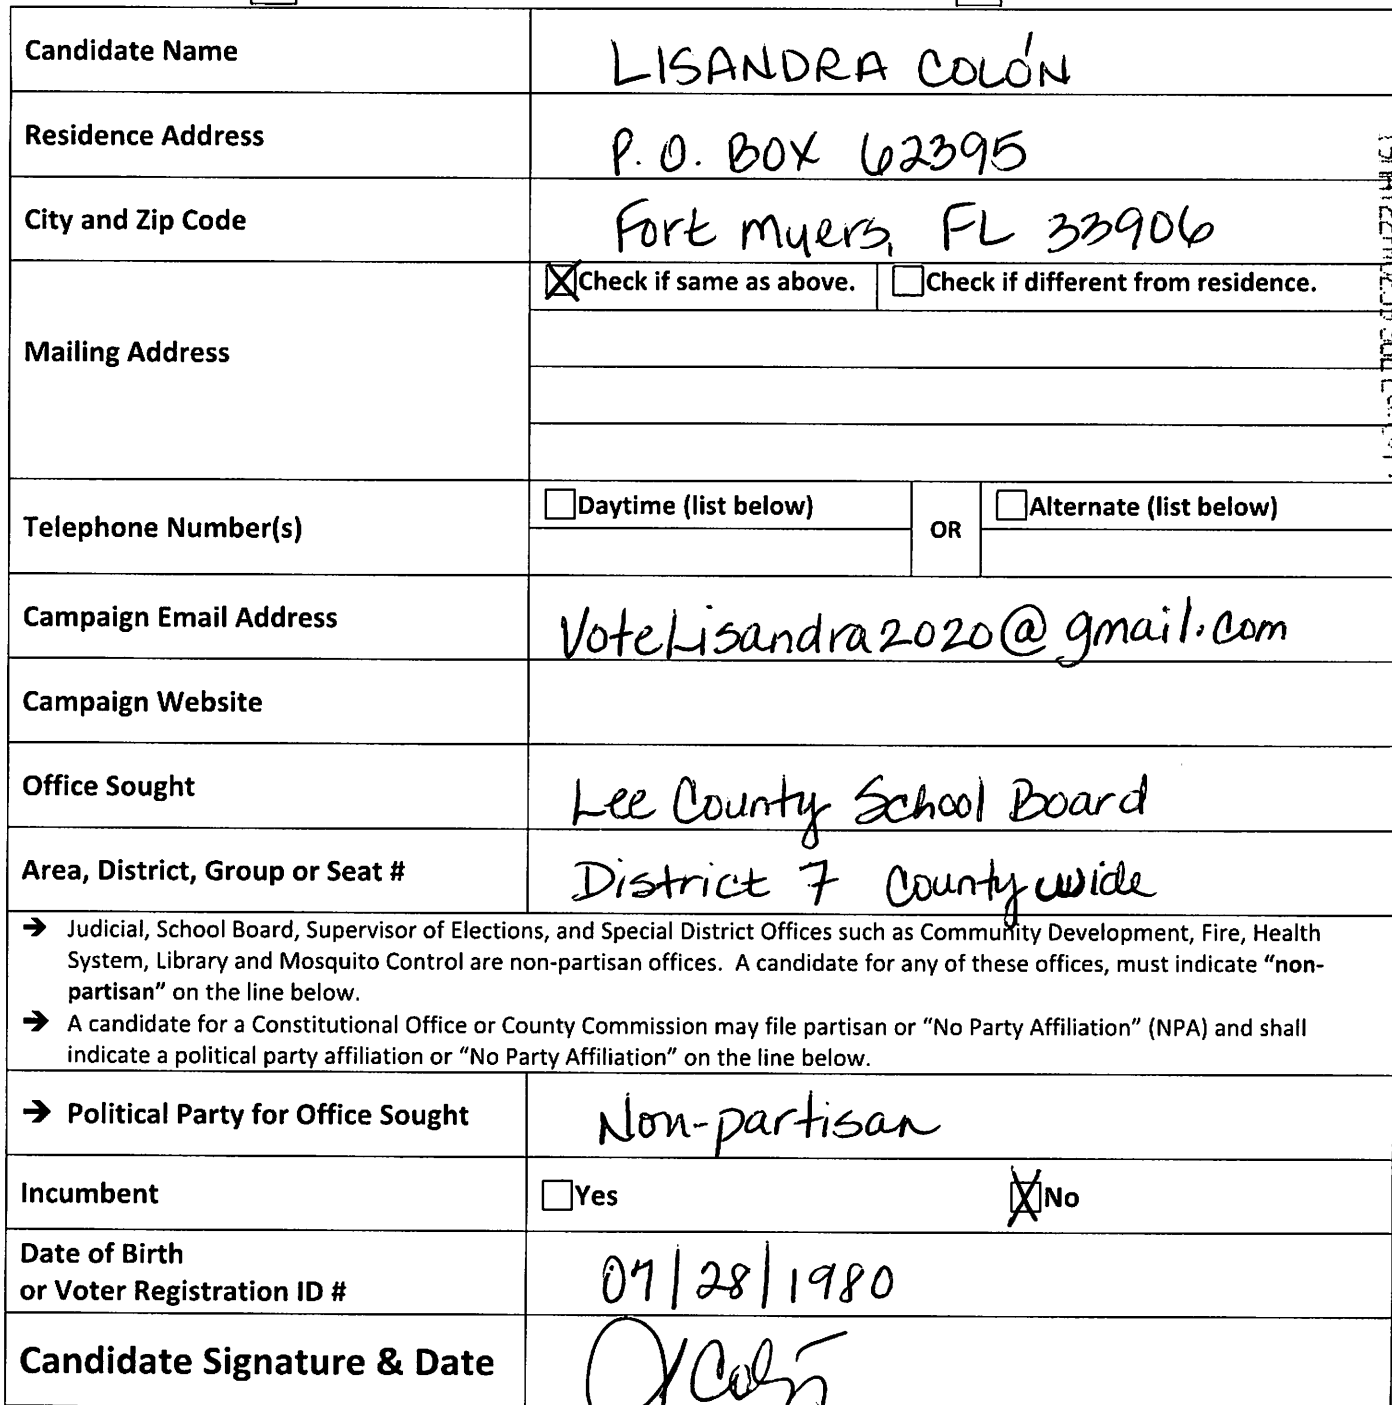 Candidate Name LISANDRA COLÓN
Residence Address P.O. BOX 62395
City and Zip Code Fort Myers, FL 33906
Check if same as above. Check if different from residence.
Mailing Address
Daytime (list below) Alternate (list below)
Telephone Number(s) OR
Campaign Email Address VoteLisandra2020@gmail.com
Campaign Website
Office Sought Lee County School Board
Area, District, Group or Seat # District 7 Countywide
→ Judicial, School Board, Supervisor of Elections, and Special District Offices such as Community Development, Fire, Health
System, Library and Mosquito Control are non-partisan offices. A candidate for any of these offices, must indicate "non-
partisan" on the line below.
→ A candidate for a Constitutional Office or County Commission may file partisan or "No Party Affiliation" (NPA) and shall
indicate a political party affiliation or "No Party Affiliation" on the line below.
→ Political Party for Office Sought Non-partisan
Incumbent Yes No
Date of Birth
or Voter Registration ID # 07/28/1980
Candidate Signature & Date